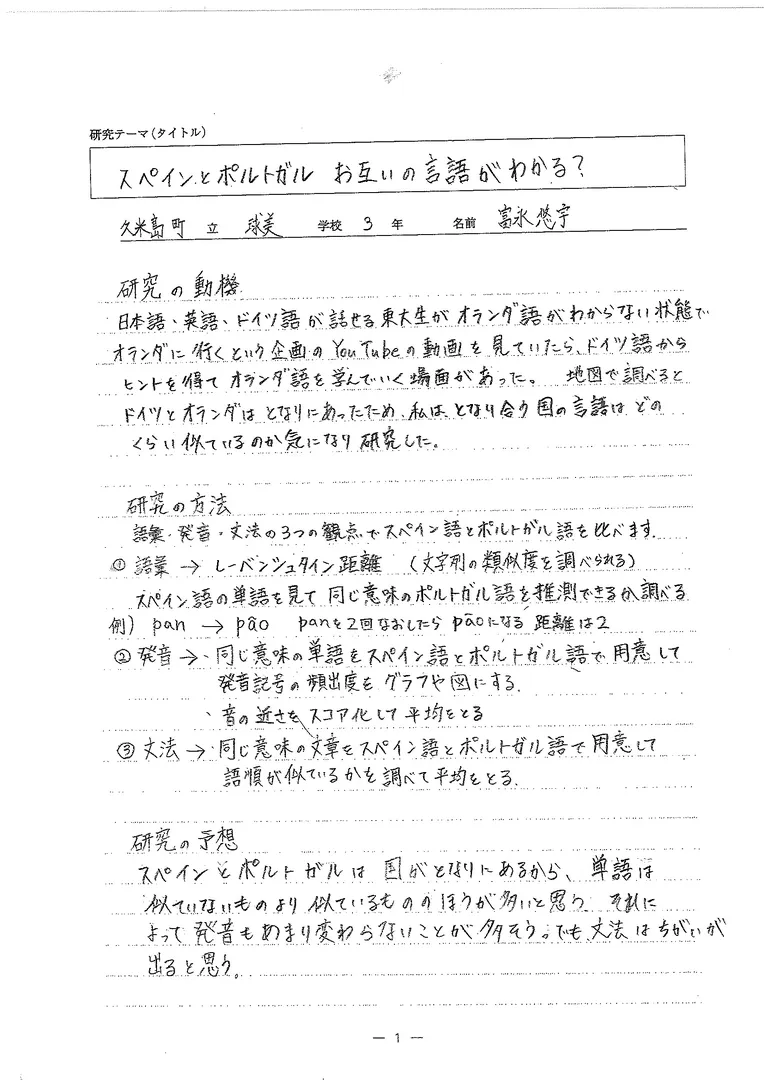 研究テーマ(タイトル)
スペインとポルトガル お互いの言語がわかる?
久米島町 立 球美 学校 3 年 名前 富永悠宇
研究の動機
日本語・英語・ドイツ語が話せる東大生がオランダ語がわからない状態で
オランダに行くという企画のYouTubeの動画を見ていたら、ドイツ語から
ヒントを得てオランダ語を学んでいく場面があった。 地図で調べると
ドイツとオランダはとなりにあったため、私はとなり合う国の言語はどの
くらい似ているのか気になり研究した。
研究の方法
語彙・発音・文法の3つの観点でスペイン語とポルトガル語を比べます.
① 語彙 → レーベンシュタイン距離 (文字列の類似度を調べられる)
スペイン語の単語を見て同じ意味のポルトガル語を推測できるか調べる
例) pan → pão panを2回なおしたらpãoになる 距離は2
② 発音 → ・同じ意味の単語をスペイン語とポルトガル語で用意して
発音記号の頻出度をグラフや図にする.
・音の近さをスコア化して平均をとる
③ 文法 → ・同じ意味の文章をスペイン語とポルトガル語で用意して
語順が似ているかを調べて平均をとる.
研究の予想
スペインとポルトガルは国がとなりにあるから、単語は
似ていないものより似ているもののほうが多いと思う. それに
よって発音もあまり変わらないことが多そう。でも文法はちがいが
出ると思う。
— 1 —